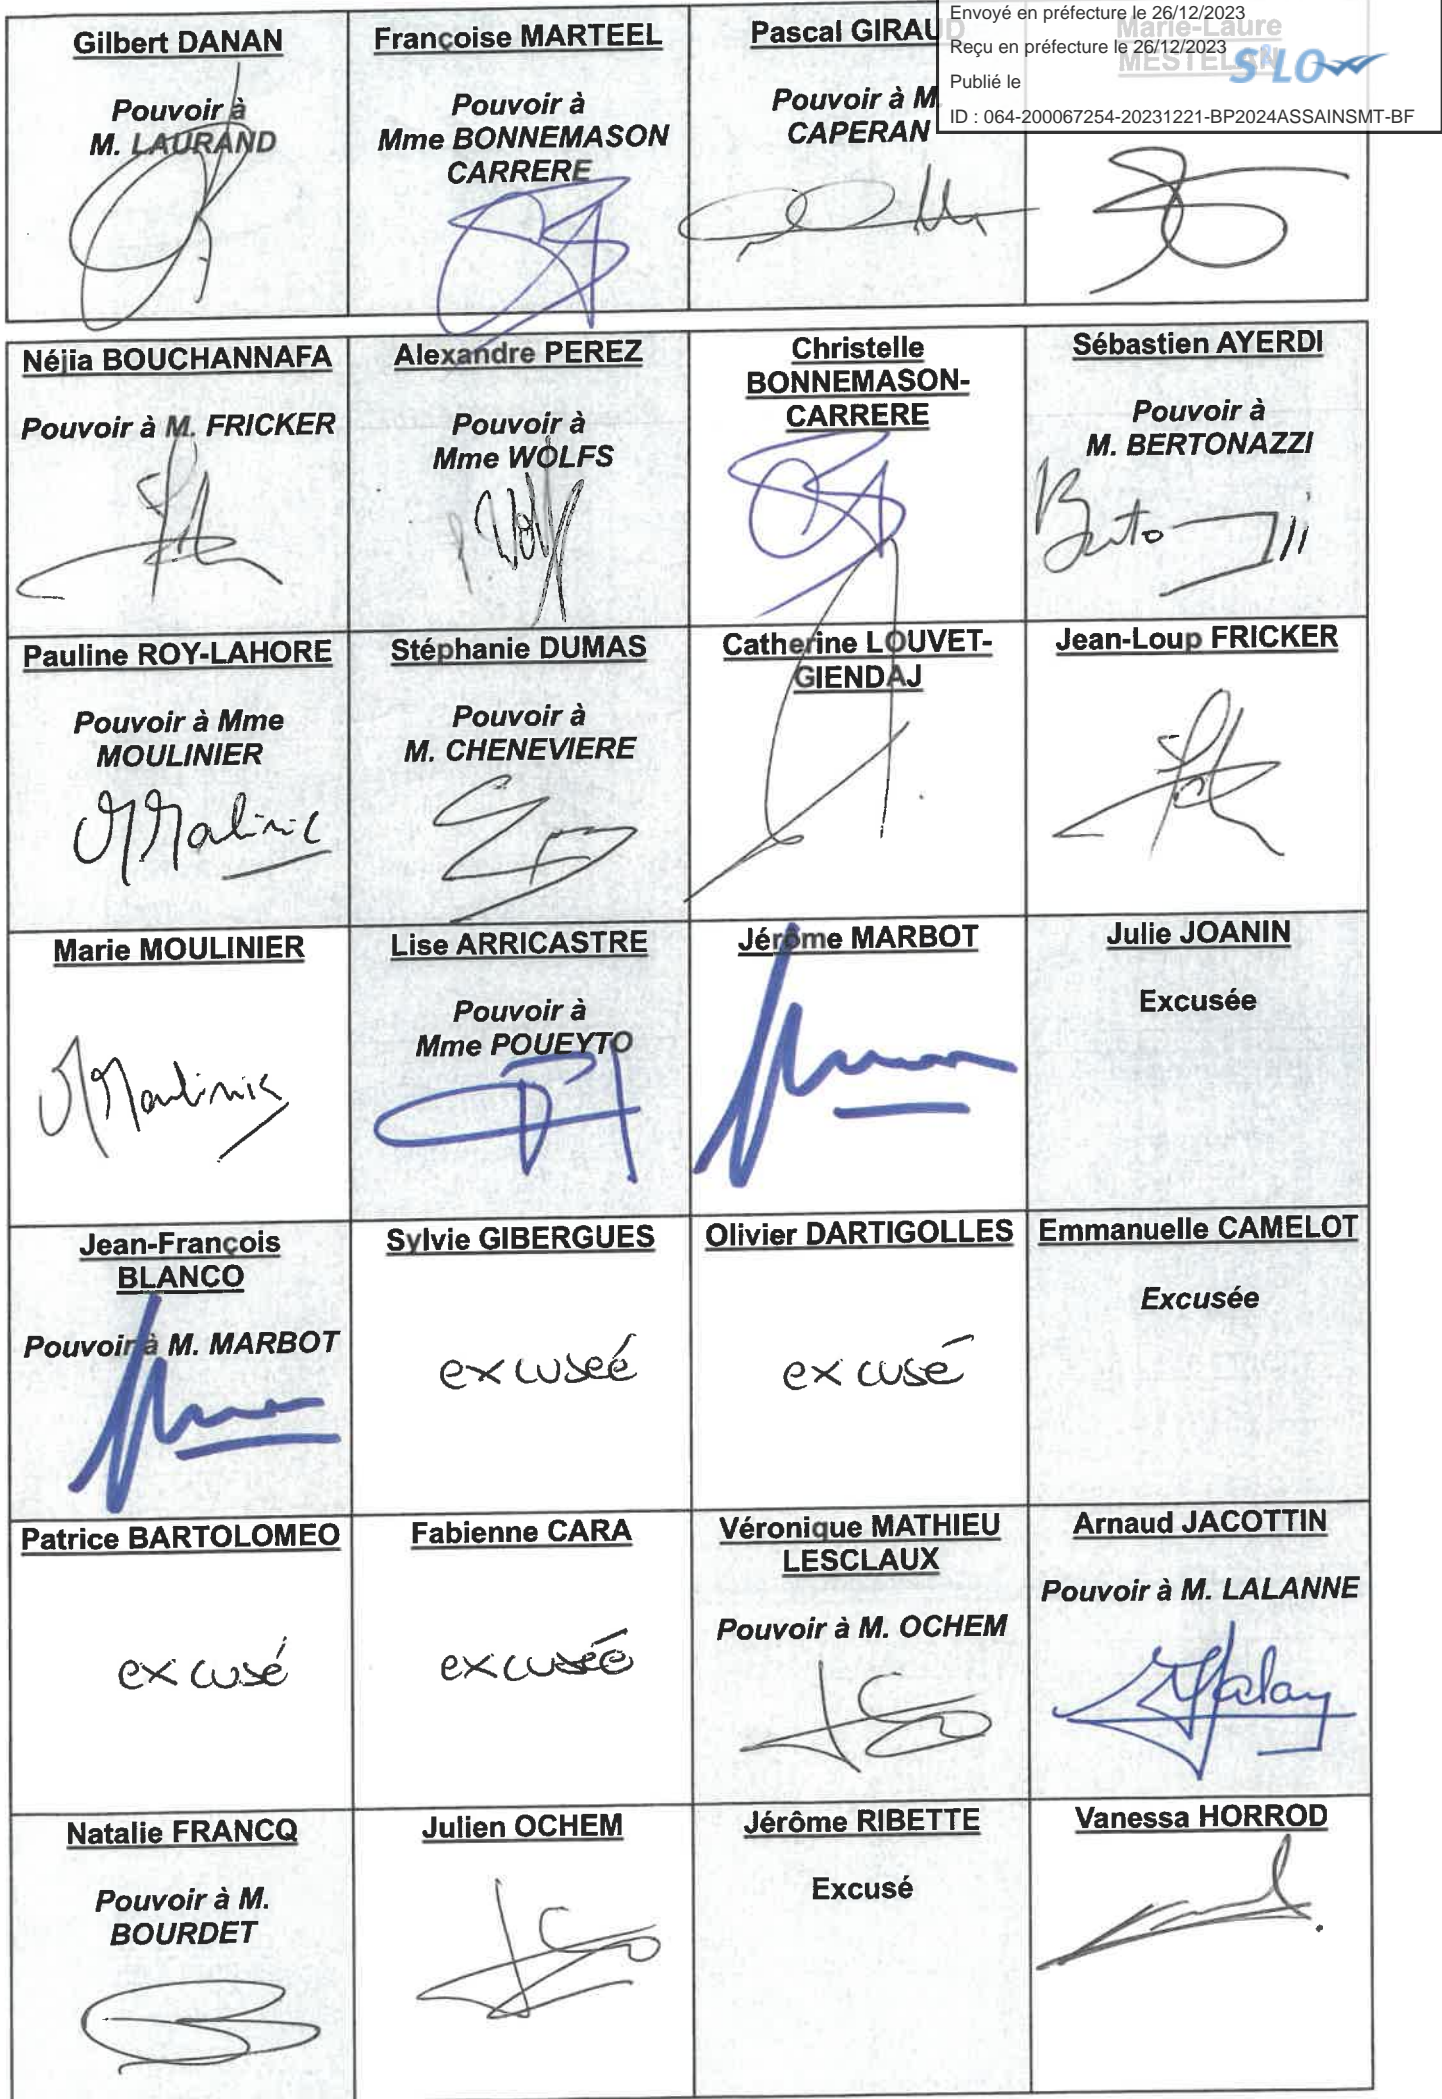 Envoyé en préfecture le 26/12/2023
Reçu en préfecture le 26/12/2023
Publié le
ID : 064-200067254-20231221-BP2024ASSAINSMT-BF
S²LOW
Gilbert DANAN
Pouvoir à
M. LAURAND
Françoise MARTEEL
Pouvoir à
Mme BONNEMASON
CARRERE
Pascal GIRAUD
Pouvoir à M.
CAPERAN
Marie-Laure
MESTELAN
Néjia BOUCHANNAFA
Pouvoir à M. FRICKER
Alexandre PEREZ
Pouvoir à
Mme WOLFS
Christelle
BONNEMASON-
CARRERE
Sébastien AYERDI
Pouvoir à
M. BERTONAZZI
Pauline ROY-LAHORE
Pouvoir à Mme
MOULINIER
Stéphanie DUMAS
Pouvoir à
M. CHENEVIERE
Catherine LOUVET-
GIENDAJ
Jean-Loup FRICKER
Marie MOULINIER
Lise ARRICASTRE
Pouvoir à
Mme POUEYTO
Jérôme MARBOT
Julie JOANIN
Excusée
Jean-François
BLANCO
Pouvoir à M. MARBOT
Sylvie GIBERGUES
excuseé
Olivier DARTIGOLLES
excusé
Emmanuelle CAMELOT
Excusée
Patrice BARTOLOMEO
excusé
Fabienne CARA
excusée
Véronique MATHIEU
LESCLAUX
Pouvoir à M. OCHEM
Arnaud JACOTTIN
Pouvoir à M. LALANNE
Natalie FRANCQ
Pouvoir à M.
BOURDET
Julien OCHEM
Jérôme RIBETTE
Excusé
Vanessa HORROD